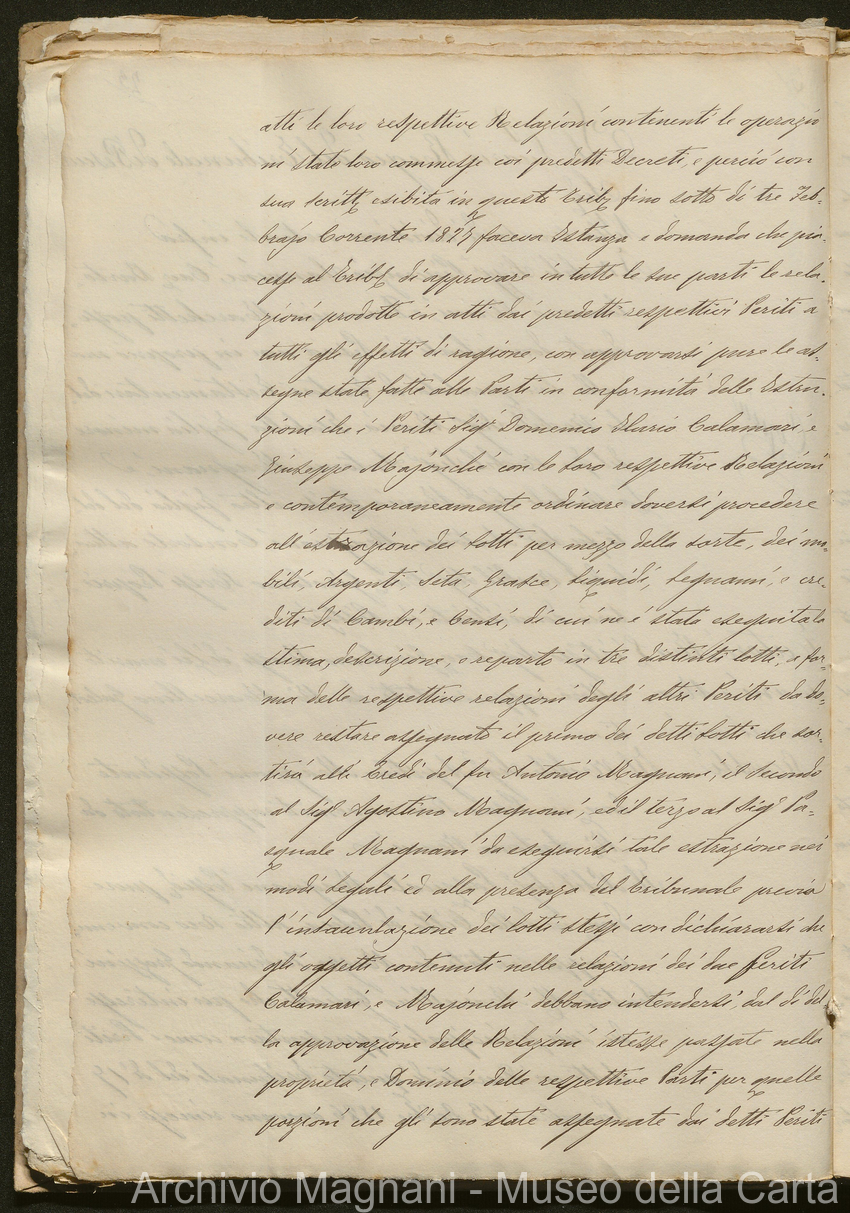 atti le loro respettive Relazioni contenenti le operazio
ni state loro commesse coi predetti Decreti, e perciò con
sua scritt esibita in questo Trib fino sotto dì tre Feb-
brajo Corrente faceva Istanza e domanda che pia-
cesse al Trib di approvare in tutte le sue parti le rela-
zioni prodotte in atti dai predetti respettivi Periti a
tutti gli effetti di ragione, con approvarsi pure le as-
segne state fatte alle Parti in conformità delle Istru-
zioni che i Periti Sig Domenico Ilario Calamari, e
Giuseppe Majonchi con le loro respettive Relazioni
e contemporaneamente ordinare doversi procedere
all'estrazione dei Lotti per mezzo della sorte, dei mo-
bili, Argenti, Seta, Grasce, Liquidi, Legnami, e cre-
diti di Cambi, e Censi, di cui ne è stata eseguita la
stima, descrizione, e reparto in tre distinti lotti, a for-
ma delle respettive relazioni degli altri Periti da do-
vere restare assegnato il primo dei detti Lotti che sor-
tirà alli Eredi del fu Antonio Magnani, il Secondo
al Sig Agostino Magnani, ed il terzo al Sig Pa-
squale Magnani da eseguirsi tale estrazione nei
modi legali ed alla presenza del Tribunale previa
l'imborsazione dei lotti stessi con dichiararsi che
gli oggetti contenuti nelle relazioni dei due Periti
Calamari, e Majonchi debbano intendersi, dal dì del-
la approvazione delle Relazioni istesse passate nella
proprietà, e Dominio delle respettive Parti per quelle
porzioni che gli sono state assegnate dai detti Periti
Archivio Magnani - Museo della Carta